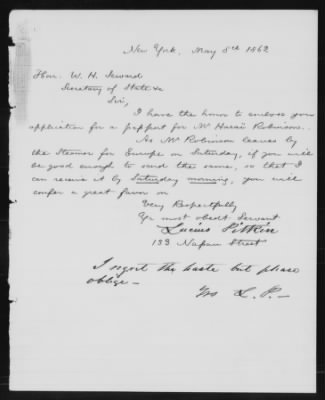 New York, May 8th 1862
Hon. W. H. Seward
Secretary of State &c
Sir,
I have the honor to enclose your
application for a passport for Mr Robinson.
As Mr Robinson leaves by
the Steamer for Europe on Saturday, if you will
be good enough to send the same, so that I
can receive it by Saturday morning, you will
confer a great favor on
Very Respectfully
Yr most obedt Servant
Lucius Pitkin
133 Nassau Street
I regret the haste but please
oblige —
Yrs L. P. —